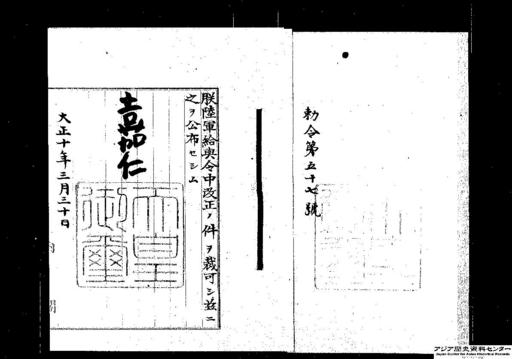 勅令第五十七號
朕陸軍給與令中改正ノ件ヲ裁可シ茲ニ
之ヲ公布セシム
嘉仁
天皇御璽
大正十年三月三十日
アジア歴史資料センター
Japan Center for Asian Historical Records